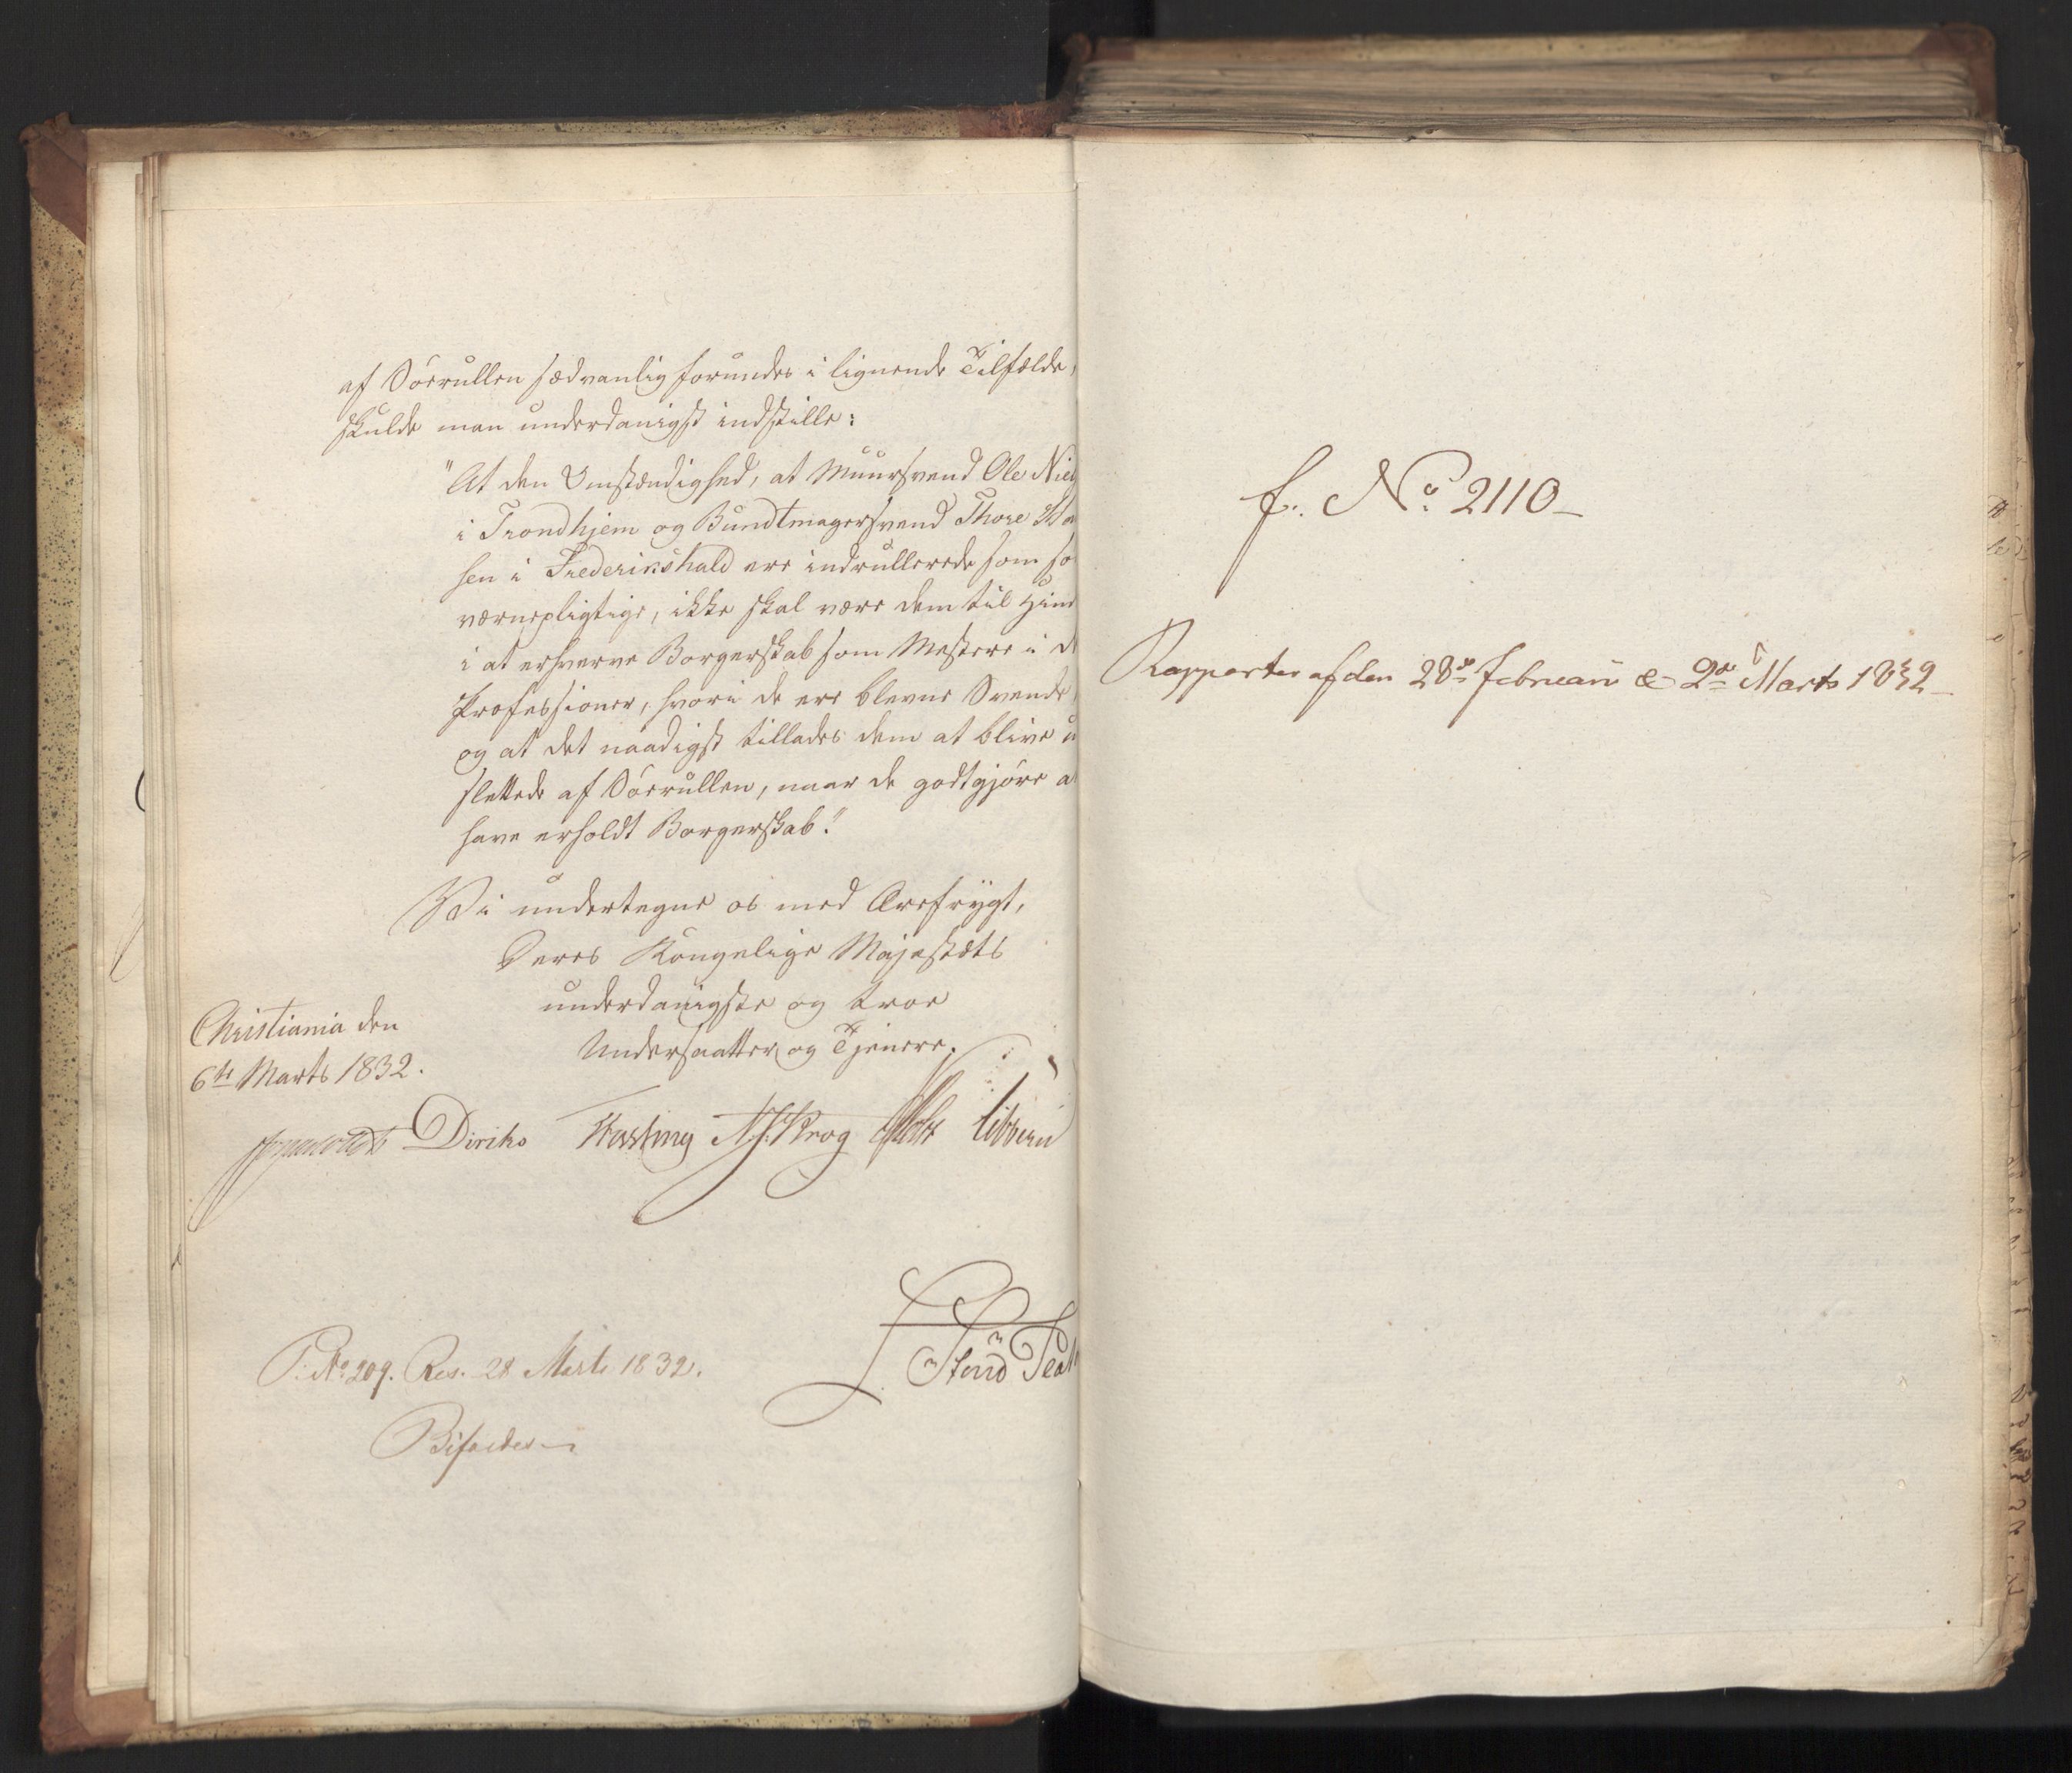 af Søerullen sædvanlig forundes i lignende Tilfælde,
skulde man underdanigst indstille:
"At den Omstændighed, at Muursvend Ole Niel
i Trondhjem og Bundtmagersvend Thore
sen i Frederikshald ere indrullerede som sø
værnepligtige, ikke skal være dem til Hind
i at erhverve Borgerskab som Mestere i d
Professioner, hvori de ere blevne Svende,
og at det naadigst tillades dem at blive u
slettede af Søerullen, naar de godtgjøre a
have erholdt Borgerskab."
Vi undertegne os med Ærefrygt,
Deres Kongelige Majestæts
underdanigste og troe
Undersaatter og Tjenere.
Christiania den
6te Marts 1832.
Diriks Fasting Krog Sibbern
P. No 209. Res. 28 Marts 1832.
Bifaldes
f. No 2110_
Rapporter af den 28de Februari & 2den Marts 1832_